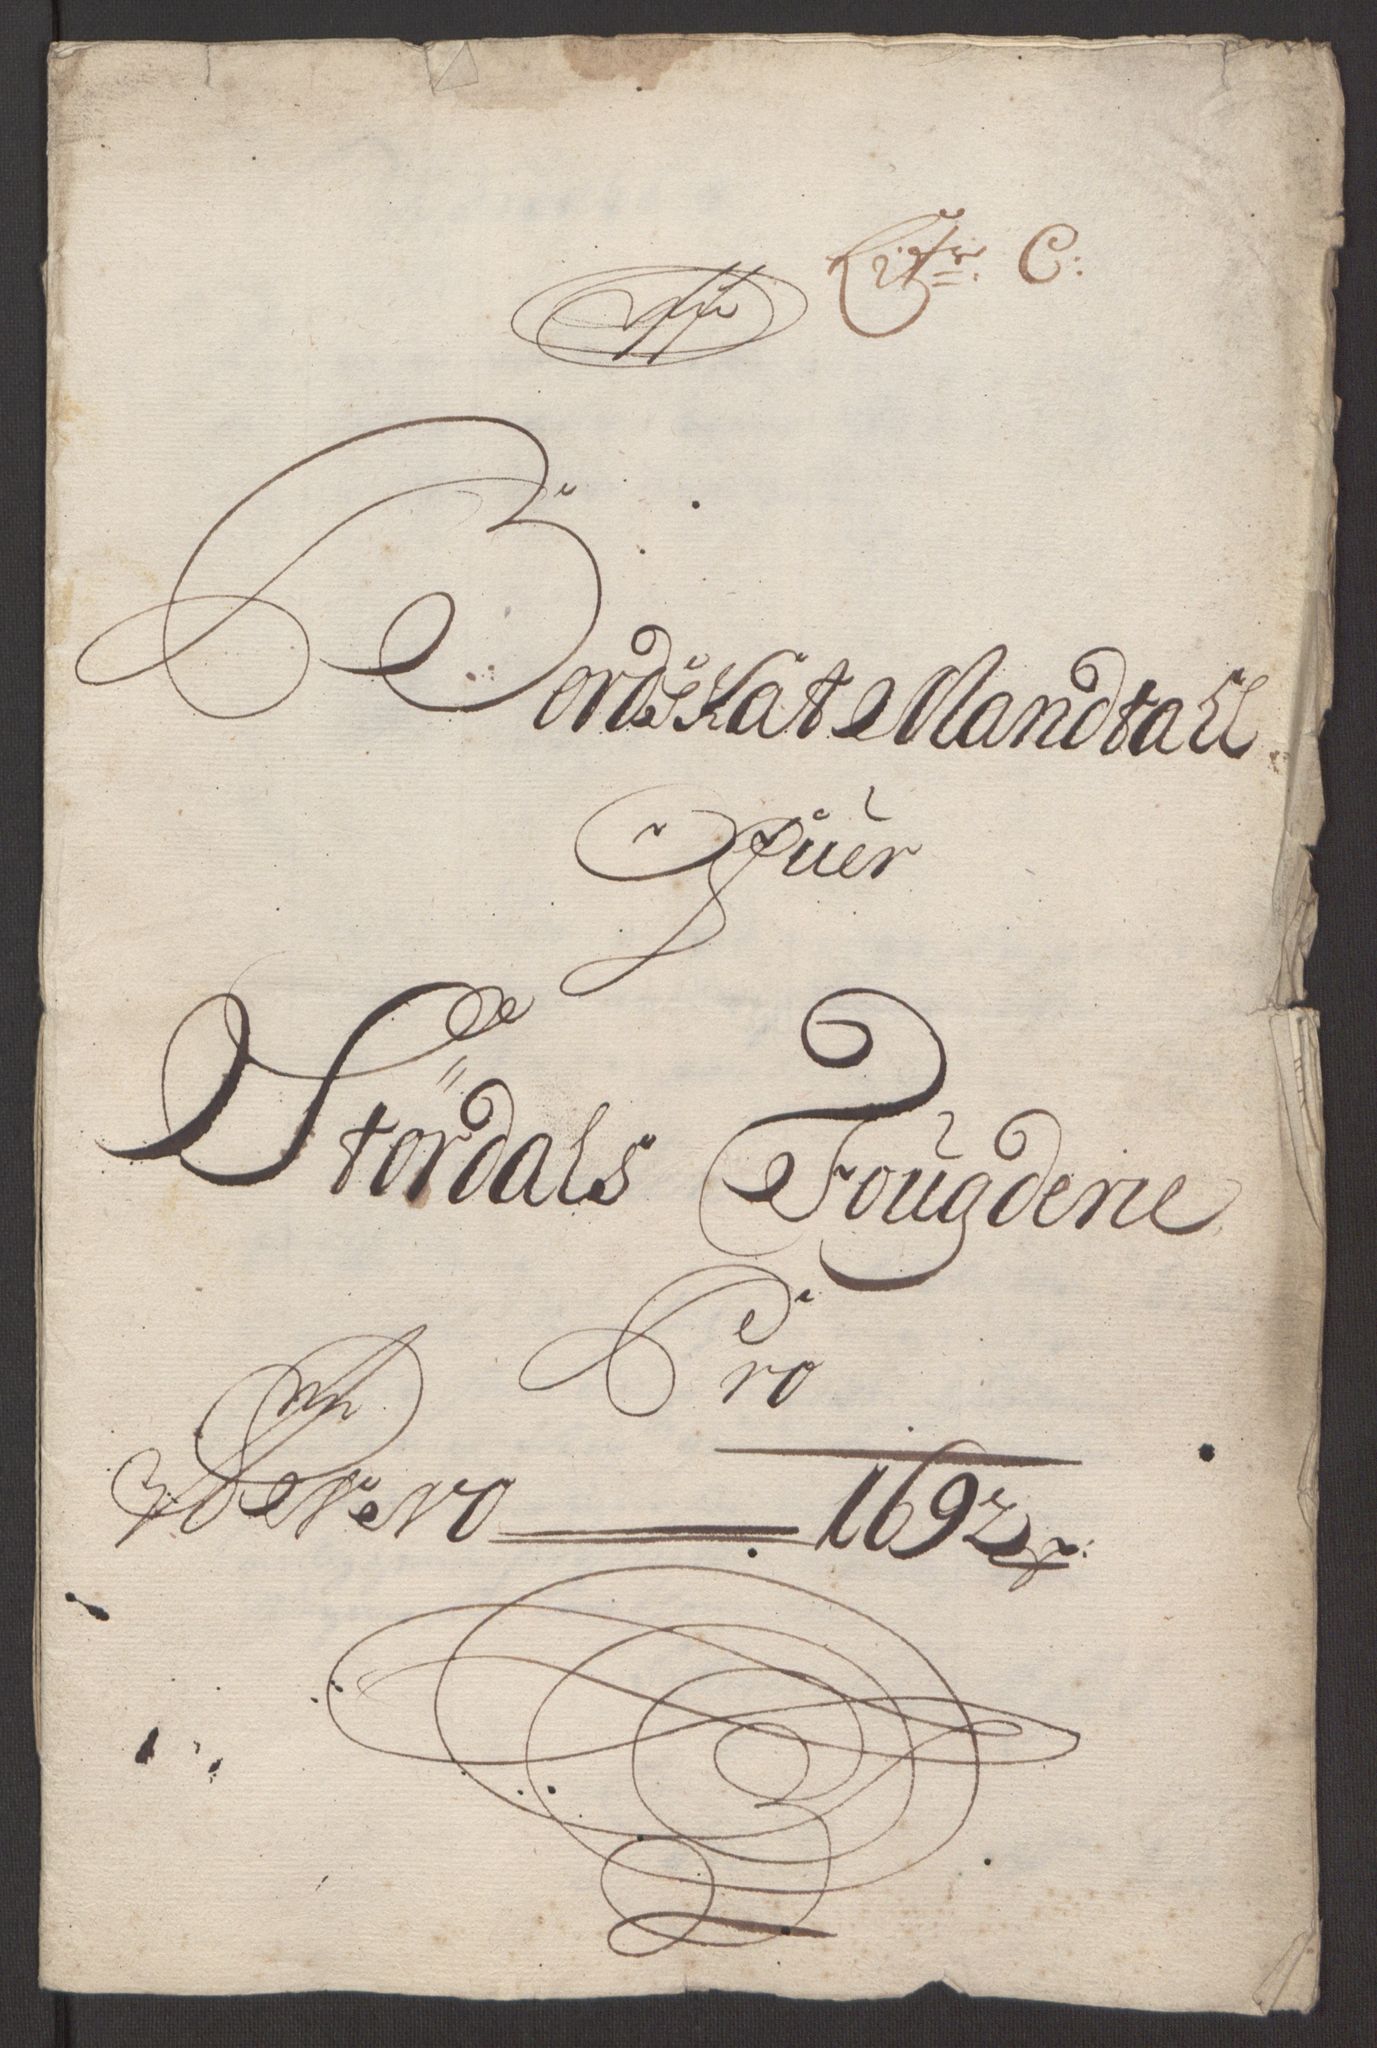 Littr: C:
Bordskat Mandtall
Ofuer
Stördals Fougderie
Pro
1692